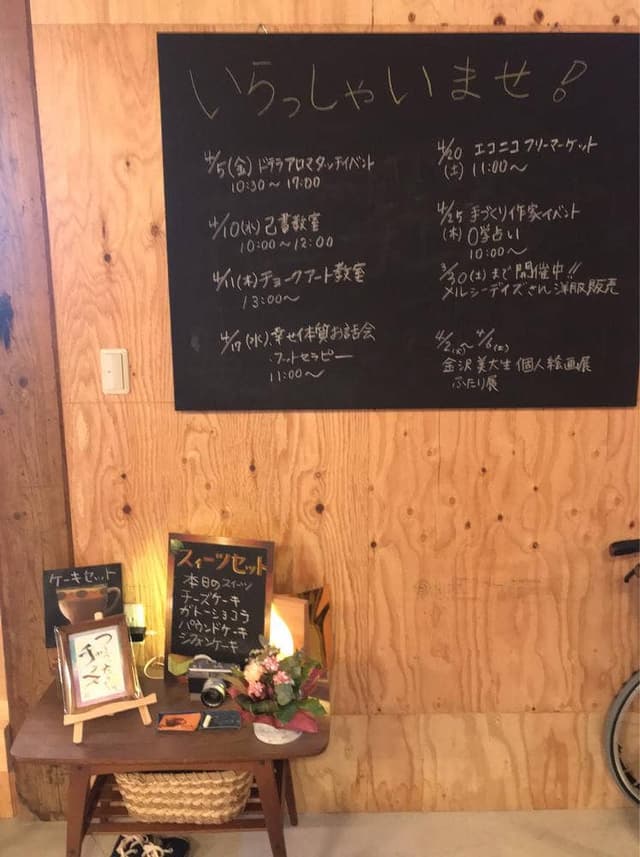 いらっしゃいませ!
4/5(金) ドテラアロマタッチイベント
10:30〜17:00
4/10(水) 己書教室
10:00〜12:00
4/11(木) チョークアート教室
13:00〜
4/17(水) 幸せ体質お話会
・フットセラピー
11:00〜
4/20 エコニコフリーマーケット
(土) 11:00〜
4/25 手づくり作家イベント
(木) 0学占い
10:00〜
3/30(土)まで開催中!!
メルシーデイズさん洋服販売
4/2(火)〜4/6(土)
金沢美大生個人絵画展
ふたり展
ケーキセット
スィーツセット
本日のスイーツ
チーズケーキ
ガトーショコラ
パウンドケーキ
シフォンケーキ